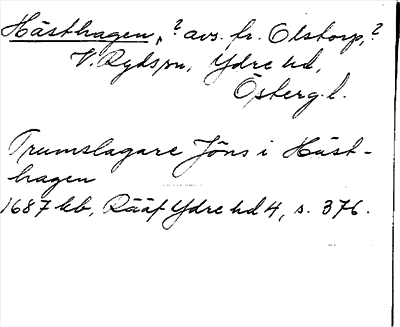 Hästhagen, ? avs. fr. Olstorp, ?
V. Ryds sn, Ydre hd,
Österg. l.
Trumslagare Jöns i Häst-
hagen
1687 kb, Rääf Ydre hd 4, s. 376.